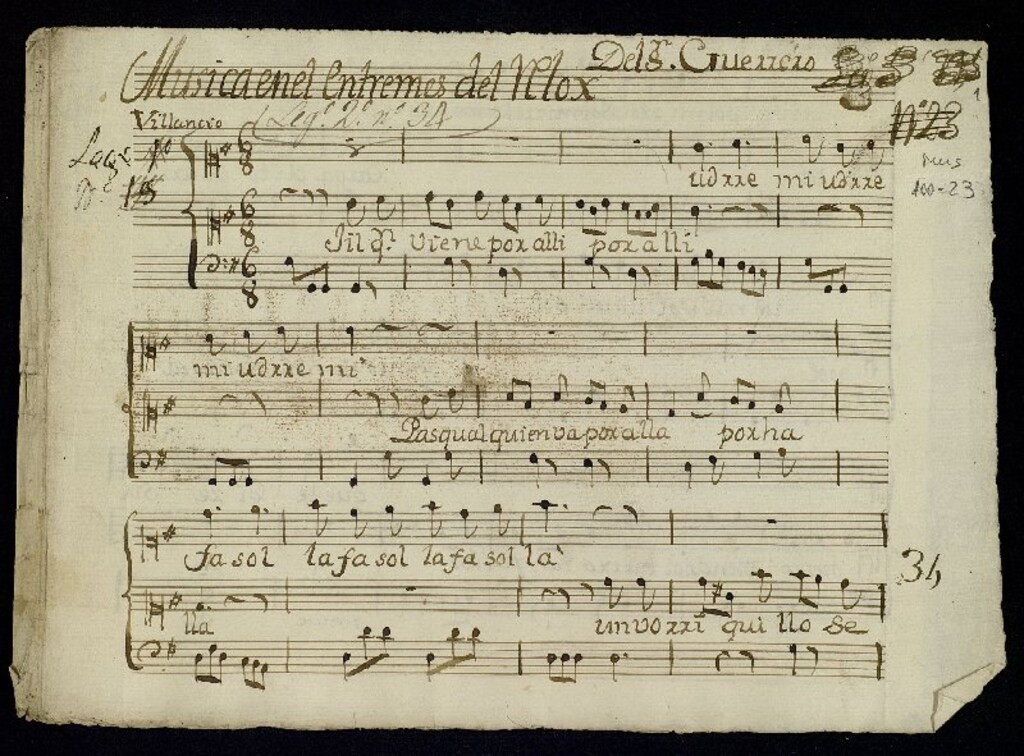 Musica en el Entremes del Relox
Del Sr. Guerrero
Villancro
Leg.º 2.º n.º 34
Nº 23
Mus
100-23
6 8
6 8
6 8
udrre mi udrre
Jil qn. viene por alli por alli
mi udrre mi
Pasqual quien va por alla por ha
fa sol la fa sol la fa sol la
lla un vorri qui llo se
34